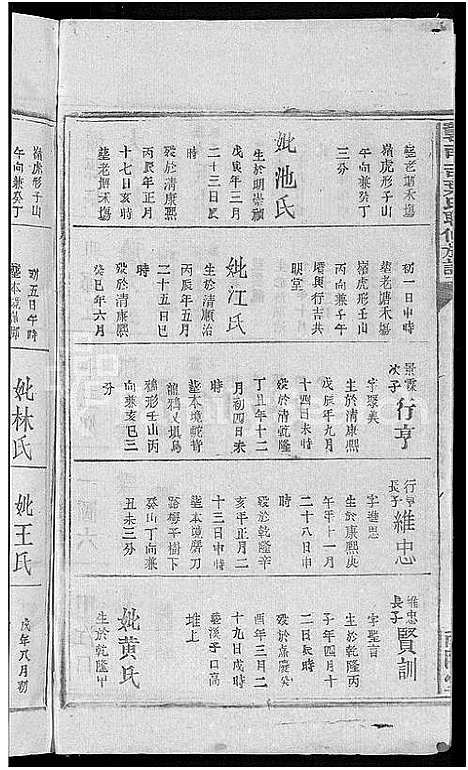 塟老塘禾塲
嶺虎形子山
午向兼癸丁
三分
妣池氏
生於明崇禎
戊寅年三月
二十三日辰
時
歿於清康熙
丙辰年正月
十七日亥時
塟老塘禾塲
初一日申時
塟老塘禾塲
嶺虎形壬山
丙向兼子午
壻與行吉共
明堂
妣江氏
生於清順治
丙辰年五月
二十五日巳
時
歿於清康熙
癸巳年六月
景霞
次子
行亨
字聚美
生於清康熙
戊辰年九月
十四日未時
歿於清乾隆
丁丑年十二
月初四日未
時
塟本境蛇背
龍鴉乂塤烏
鴉形壬山丙
向兼亥巳三
分
行亨
長子
維忠
字進思
生於康熙庚
午年十一月
二十八日申
時
歿於乾隆辛
亥年正月二
十三日申時
塟本境磨刀
路梅子樹下
癸山丁向兼
丑未三分
維忠
長子
賢訓
字聖言
生於乾隆丙
子年四月十
二日辰時
歿於嘉慶癸
酉年三月二
十九日戌時
塟溪子口高
堆上
妣黃氏
生於乾隆甲
嶺虎形子山
午向兼癸丁
初五日午時
妣林氏
妣王氏
戌年八月初